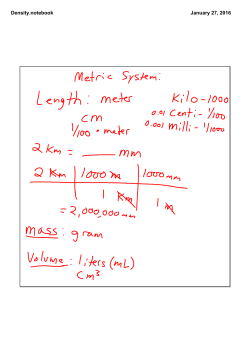 Density.notebook
January 27, 2016
Metric System:
Length: meter
Kilo-1000
0.01 Centi-1/100
0.001 milli-1/1000
cm
1/100 • meter
2 Km = ____ mm
2 Km | 1000 m | 1000 mm
1 Km | 1 m
= 2,000,000 mm
mass: gram
Volume: liters (mL)
cm³